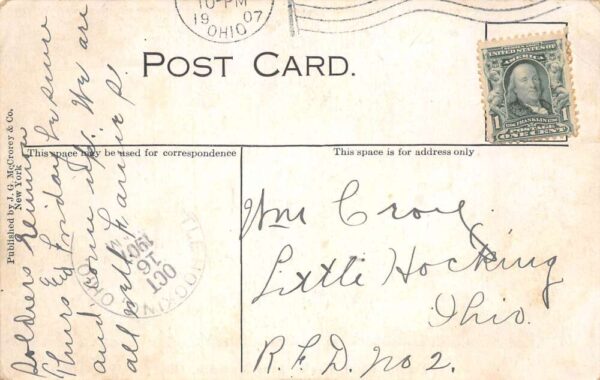 10-PM
19 07
OHIO
POST CARD.
SERIES 1902
UNITED STATES OF
AMERICA
FRANKLIN
POSTAGE
1 ONE CENT 1
Published by J. G. McCrorey & Co.
New York
This space may be used for correspondence
This space is for address only
Soldiers Reunion
Thurs & Friday be sure
and come up. We are
all well. Fannie S.
LITTLE HOCKING
OCT
16
1907
M
OHIO
Wm Crol
Little Hocking
Ohio.
R.F.D. No 2.